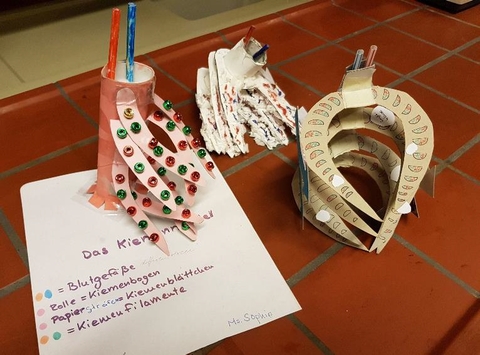 Das
= Blutgefäße
Rolle = Kiemenbogen
Papierstreifen = Kiemenblättchen
= Kiemenfilamente
Ms Sophie